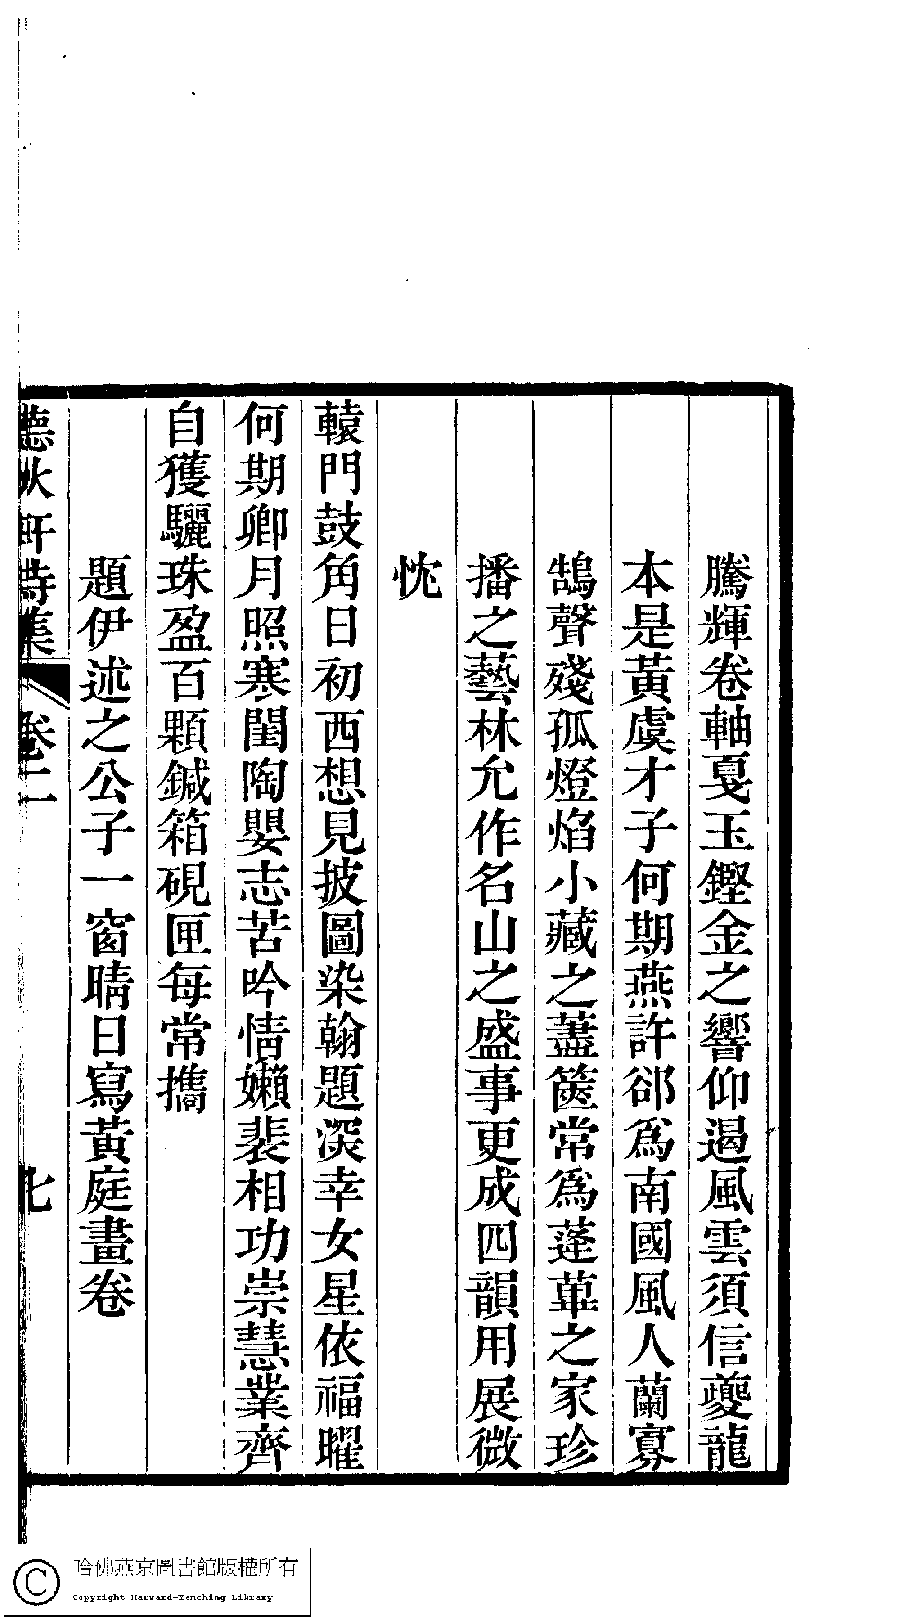 騰輝卷軸戛玉鏗金之響仰遏風雲須信夔龍
本是黃虞才子何期燕許郤爲南國風人蘭寡
鵠聲殘孤燈焰小藏之藎篋常爲蓬蓽之家珍
播之藝林允作名山之盛事更成四韻用展微
忱
轅門鼓角日初西想見披圖染翰題深幸女星依福曜
何期卿月照寒閨陶嬰志苦吟情嬾裴相功崇慧業齊
自獲驪珠盈百顆鍼箱硯匣每常攜
題伊述之公子一窗晴日寫黃庭畫卷
聽秋軒詩集 卷二 七
哈佛燕京圖書館版權所有
Copyright Harvard-Yenching Library